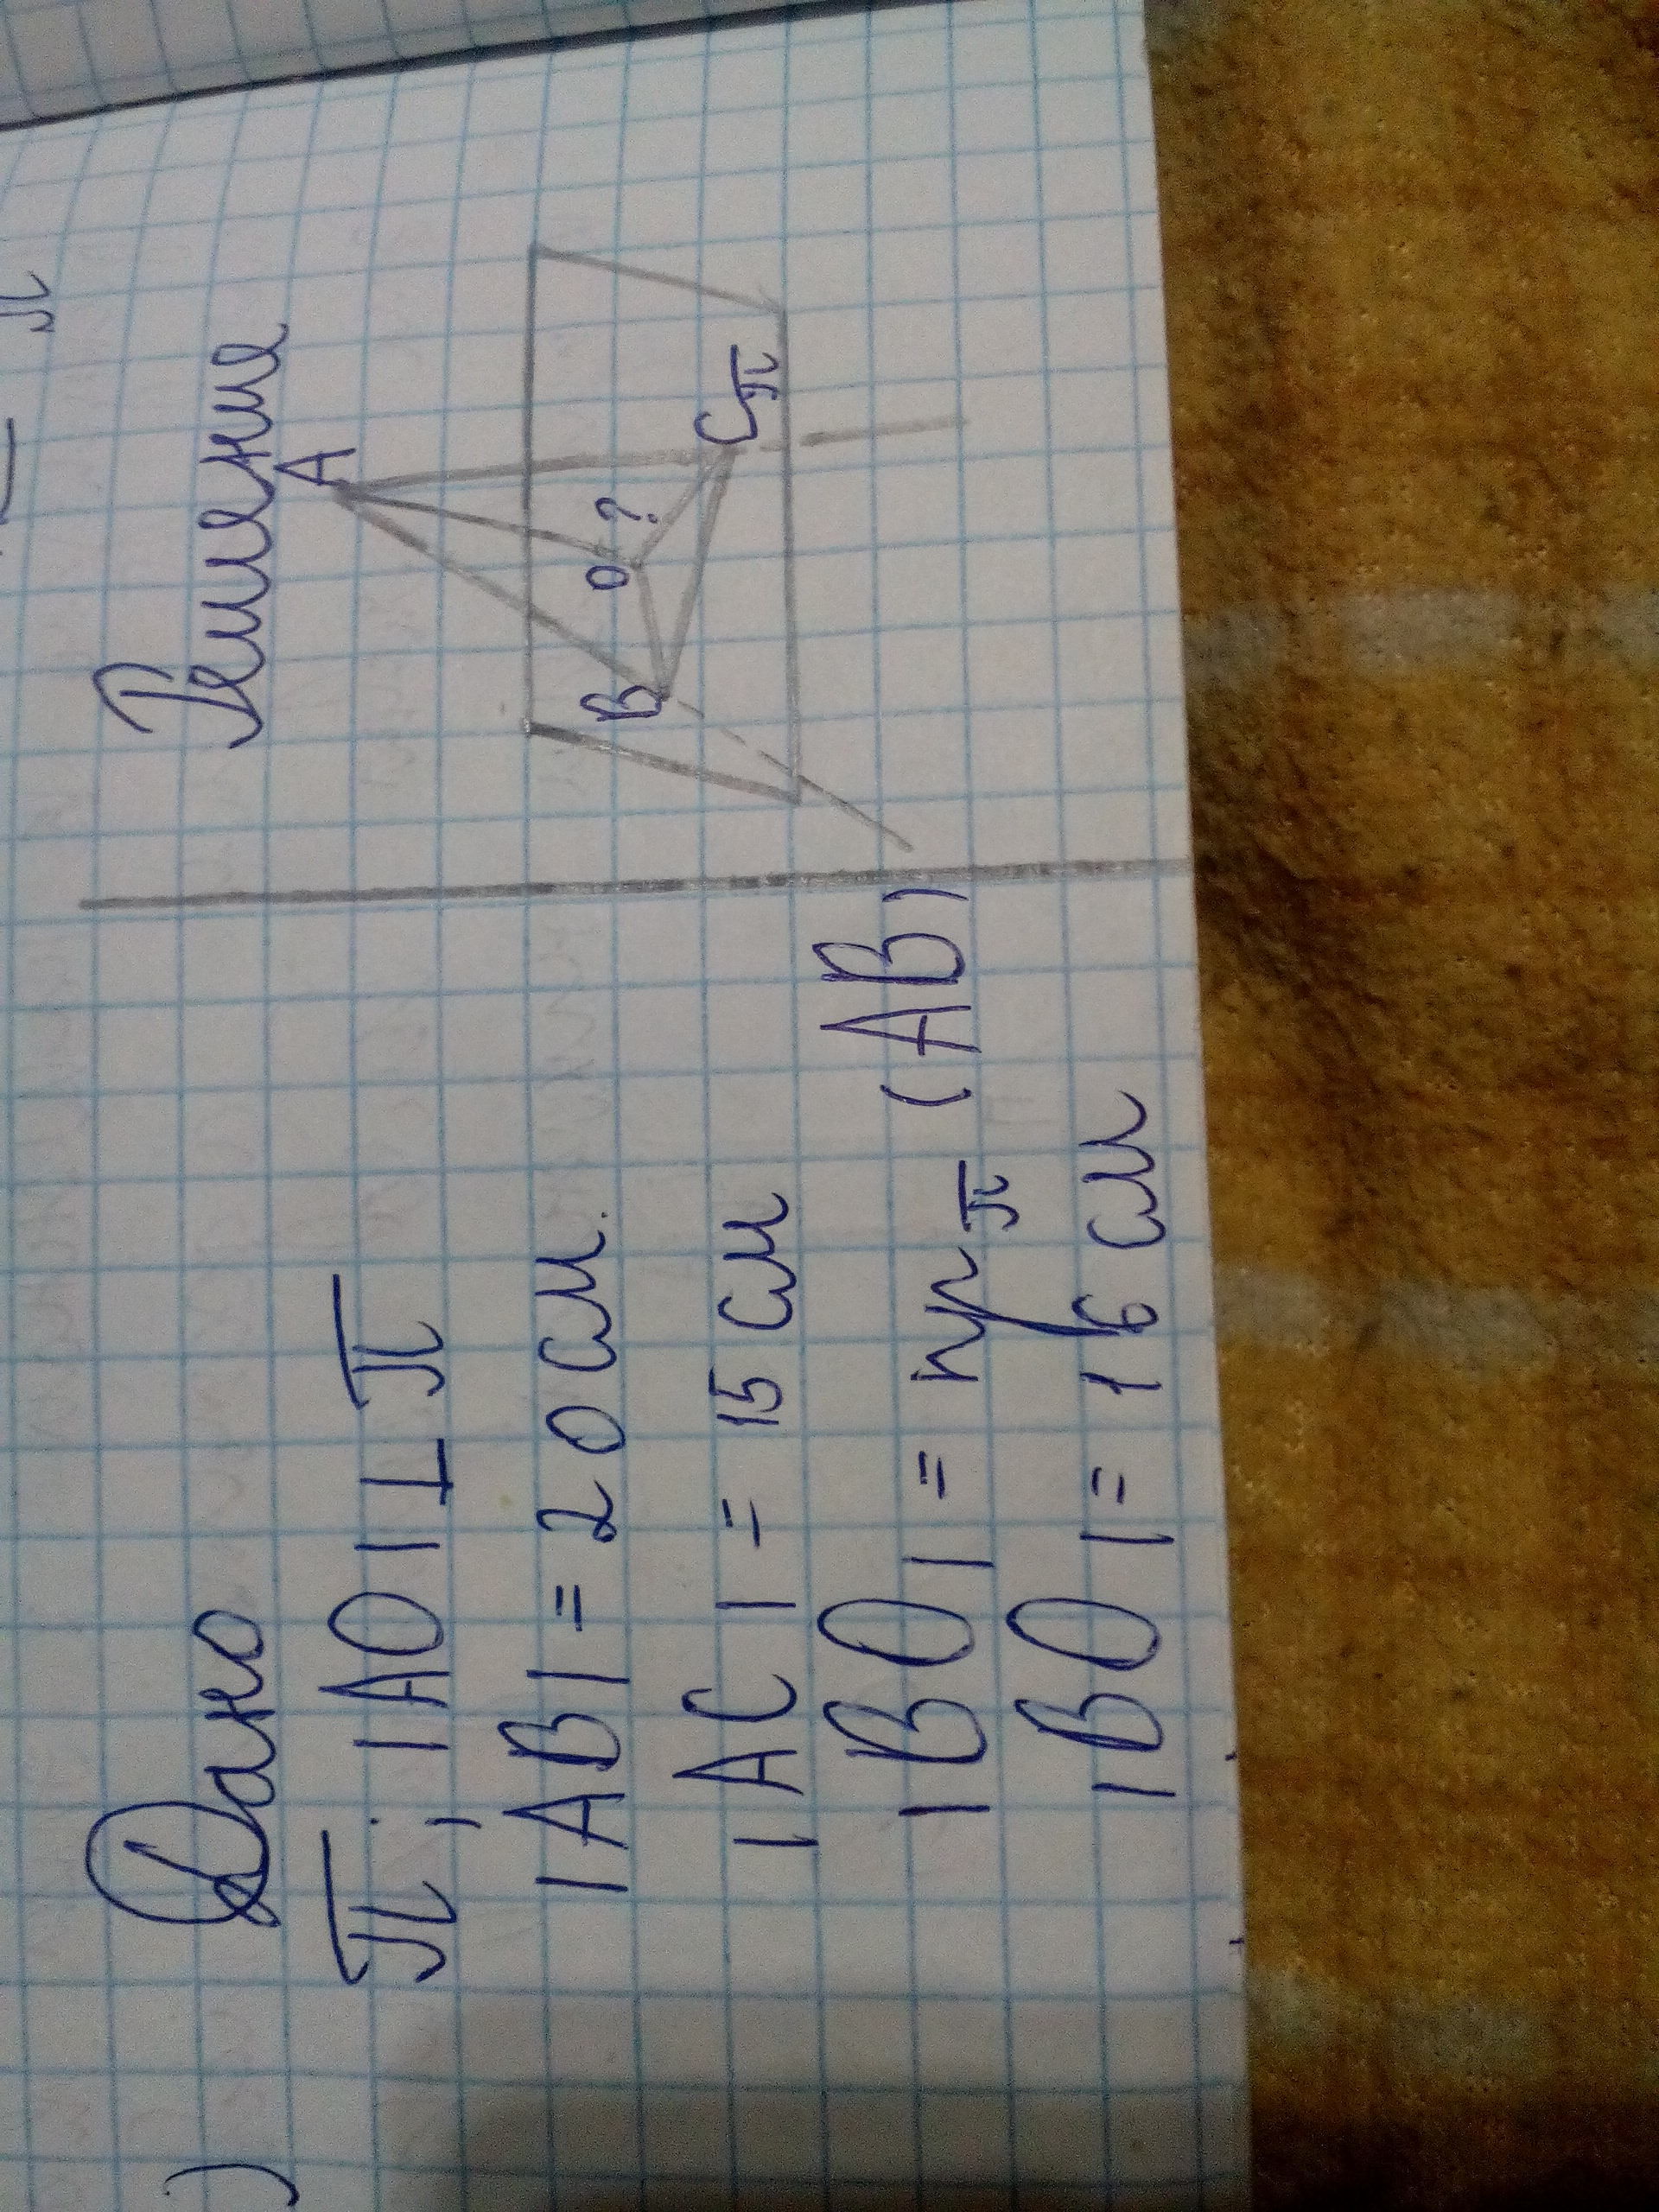 Дано
π; |AO| ⊥ π
|AB| = 20 см.
|AC| = 15 см
|BO| = пр π (AB)
|BO| = 16 см
Решение
A
B
O
?
C
π
)
π